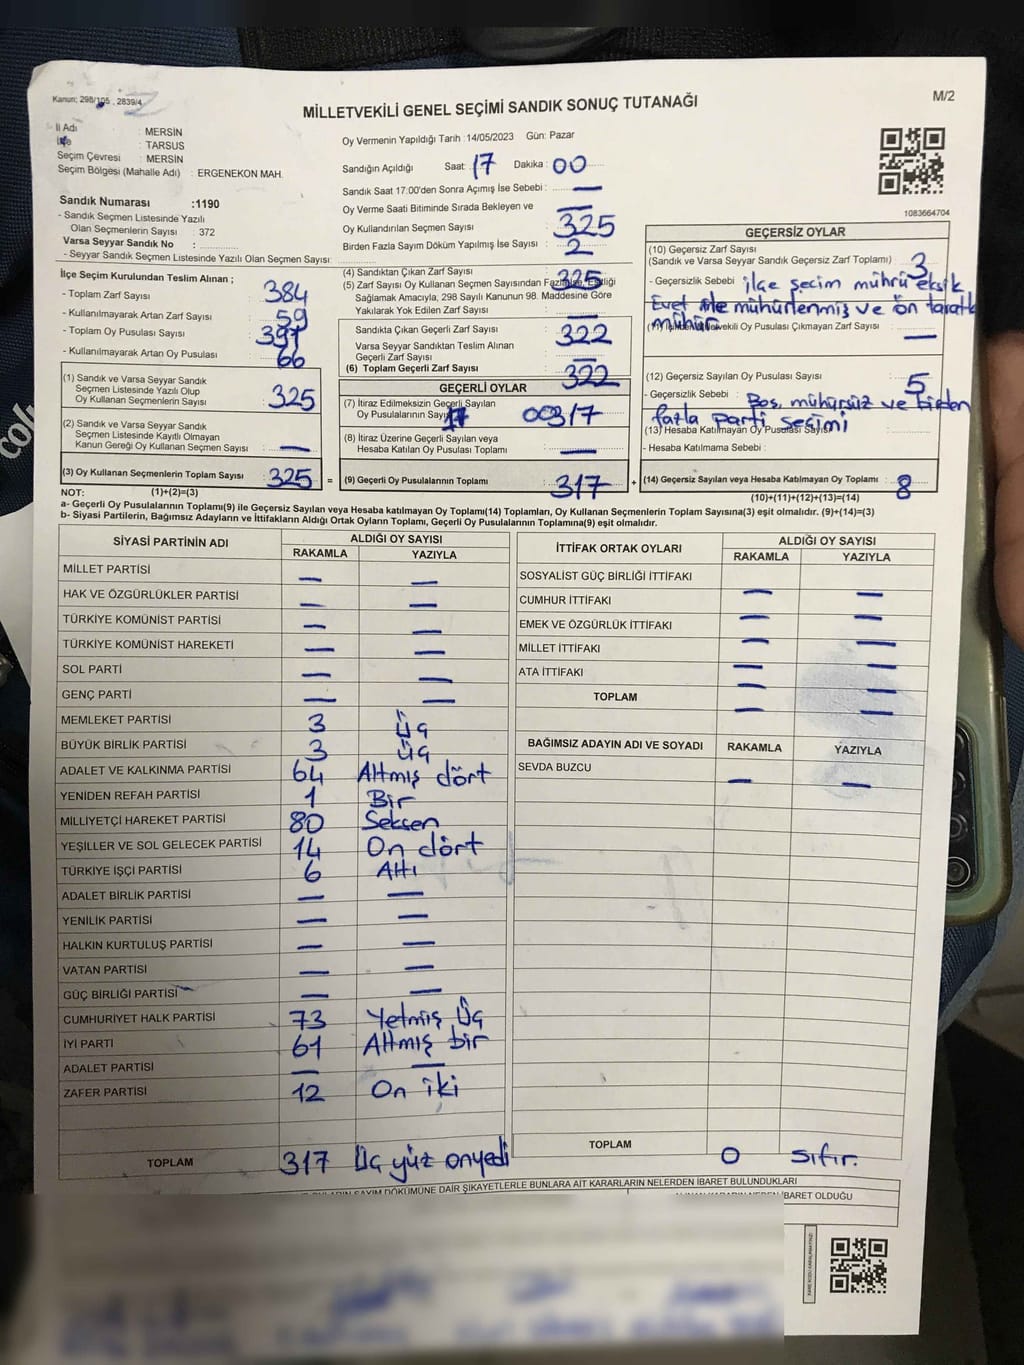 Kanun; 298/105 , 2839/4
MİLLETVEKİLİ GENEL SEÇİMİ SANDIK SONUÇ TUTANAĞI
M/2
İl Adı : MERSİN
İlçe : TARSUS
Seçim Çevresi : MERSİN
Seçim Bölgesi (Mahalle Adı) : ERGENEKON MAH.
Sandık Numarası :1190
- Sandık Seçmen Listesinde Yazılı
Olan Seçmenlerin Sayısı : 372
Varsa Seyyar Sandık No :
- Seyyar Sandık Seçmen Listesinde Yazılı Olan Seçmen Sayısı:
Oy Vermenin Yapıldığı Tarih : 14/05/2023 Gün: Pazar
Sandığın Açıldığı Saat : 17 Dakika : 00
Sandık Saat 17:00'den Sonra Açımış İse Sebebi : —
Oy Verme Saati Bitiminde Sırada Bekleyen ve —
Oy Kullandırılan Seçmen Sayısı : 325
Birden Fazla Sayım Döküm Yapılmış İse Sayısı : 2
1083664704
İlçe Seçim Kurulundan Teslim Alınan ;
- Toplam Zarf Sayısı : 384
- Kullanılmayarak Artan Zarf Sayısı : 59
- Toplam Oy Pusulası Sayısı : 391
- Kullanılmayarak Artan Oy Pusulası : 66
(1) Sandık ve Varsa Seyyar Sandık
Seçmen Listesinde Yazılı Olup
Oy Kullanan Seçmenlerin Sayısı : 325
(2) Sandık ve Varsa Seyyar Sandık
Seçmen Listesinde Kayıtlı Olmayan
Kanun Gereği Oy Kullanan Seçmen Sayısı : —
(3) Oy Kullanan Seçmenlerin Toplam Sayısı : 325 =
(4) Sandıktan Çıkan Zarf Sayısı : 325
(5) Zarf Sayısı Oy Kullanan Seçmen Sayısından Fazla İse, Eşitliği
Sağlamak Amacıyla, 298 Sayılı Kanunun 98. Maddesine Göre
Yakılarak Yok Edilen Zarf Sayısı : —
Sandıkta Çıkan Geçerli Zarf Sayısı : 322
Varsa Seyyar Sandıktan Teslim Alınan
Geçerli Zarf Sayısı : —
(6) Toplam Geçerli Zarf Sayısı : 322
GEÇERLİ OYLAR
(7) İtiraz Edilmeksizin Geçerli Sayılan
Oy Pusulalarının Sayısı 317
(8) İtiraz Üzerine Geçerli Sayılan veya
Hesaba Katılan Oy Pusulası Toplamı : —
(9) Geçerli Oy Pusulalarının Toplamı : 317 +
GEÇERSİZ OYLAR
(10) Geçersiz Zarf Sayısı
(Sandık ve Varsa Seyyar Sandık Geçersiz Zarf Toplamı) : 3
- Geçersizlik Sebebi : ilçe seçim mührü eksik
Evet ile mühürlenmiş ve ön tarafta
mühür
Oy Pusulası Çıkmayan Zarf Sayısı : —
(12) Geçersiz Sayılan Oy Pusulası Sayısı : 5
- Geçersizlik Sebebi : Boş, mühürsüz ve birden
fazla parti seçimi
(13) Hesaba Katılmayan Oy Pusulası Sayısı :
- Hesaba Katılmama Sebebi :
(14) Geçersiz Sayılan veya Hesaba Katılmayan Oy Toplamı : 8
NOT: (1)+(2)=(3)
(10)+(11)+(12)+(13)=(14)
a- Geçerli Oy Pusulalarının Toplamı(9) ile Geçersiz Sayılan veya Hesaba katılmayan Oy Toplamı(14) Toplamları, Oy Kullanan Seçmenlerin Toplam Sayısına(3) eşit olmalıdır. (9)+(14)=(3)
b- Siyasi Partilerin, Bağımsız Adayların ve İttifakların Aldığı Ortak Oyların Toplamı, Geçerli Oy Pusulalarının Toplamına(9) eşit olmalıdır.
SİYASİ PARTİNİN ADI ALDIĞI OY SAYISI
RAKAMLA YAZIYLA
MİLLET PARTİSİ — —
HAK VE ÖZGÜRLÜKLER PARTİSİ — —
TÜRKİYE KOMÜNİST PARTİSİ — —
TÜRKİYE KOMÜNİST HAREKETİ — —
SOL PARTİ — —
GENÇ PARTİ — —
MEMLEKET PARTİSİ 3 Üç
BÜYÜK BİRLİK PARTİSİ 3 Üç
ADALET VE KALKINMA PARTİSİ 64 Altmış dört
YENİDEN REFAH PARTİSİ 1 Bir
MİLLİYETÇİ HAREKET PARTİSİ 80 Seksen
YEŞİLLER VE SOL GELECEK PARTİSİ 14 On dört
TÜRKİYE İŞÇİ PARTİSİ 6 Altı
ADALET BİRLİK PARTİSİ — —
YENİLİK PARTİSİ — —
HALKIN KURTULUŞ PARTİSİ — —
VATAN PARTİSİ — —
GÜÇ BİRLİĞİ PARTİSİ — —
CUMHURİYET HALK PARTİSİ 73 Yetmiş Üç
İYİ PARTİ 61 Altmış bir
ADALET PARTİSİ — —
ZAFER PARTİSİ 12 On iki
TOPLAM 317 Üç yüz onyedi
İTTİFAK ORTAK OYLARI ALDIĞI OY SAYISI
RAKAMLA YAZIYLA
SOSYALİST GÜÇ BİRLİĞİ İTTİFAKI — —
CUMHUR İTTİFAKI — —
EMEK VE ÖZGÜRLÜK İTTİFAKI — —
MİLLET İTTİFAKI — —
ATA İTTİFAKI — —
TOPLAM — —
BAĞIMSIZ ADAYIN ADI VE SOYADI RAKAMLA YAZIYLA
SEVDA BUZCU — —
TOPLAM 0 sıfır.
SAYIM DÖKÜMÜNE DAİR ŞİKAYETLERLE BUNLARA AİT KARARLARIN NELERDEN İBARET BULUNDUKLARI
İBARET OLDUĞU